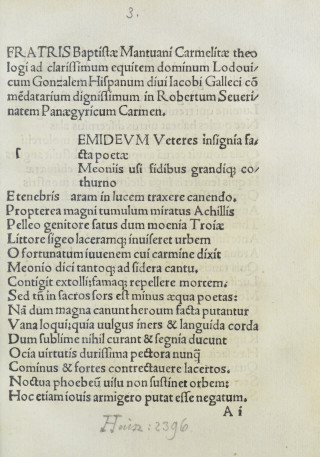 3.
FRATRIS Baptistæ Mantuani Carmelitæ theo
logi ad clarissimum equitem dominum Lodoui/
cum Gonzalem Hispanum diui Iacobi Galleci cō
mēdatarium dignissimum in Robertum Seueri/
natem Panægyricum Carmen.
EMIDEVM Veteres insignia fa/
s
cta poetæ
Meoniis usi fidibus grandiq; co/
thurno
E tenebris aram in lucem traxere canendo.
Propterea magni tumulum miratus Achillis
Pelleo genitore satus dum moenia Troiæ
Littore sigeo laceramq; inuiseret urbem
O fortunatum iuuenem cui carmine dixit
Meonio dici tantoq; ad sidera cantu.
Contigit extolli; famaq; repellere mortem.
Sed tñ in sacros fors est minus æqua poetas:
Nā dum magna canunt heroum facta putantur
Vana loqui; quia uulgus iners & languida corda
Dum sublime nihil curant & segnia ducunt
Ocia uirtutis durissima pectora nunq̄
Cominus & fortes contrectauere lacertos.
Noctua phoebeū uisu non sustinet orbem:
Hoc etiam iouis armigero putat esse negatum.
A i
Hain: 2396